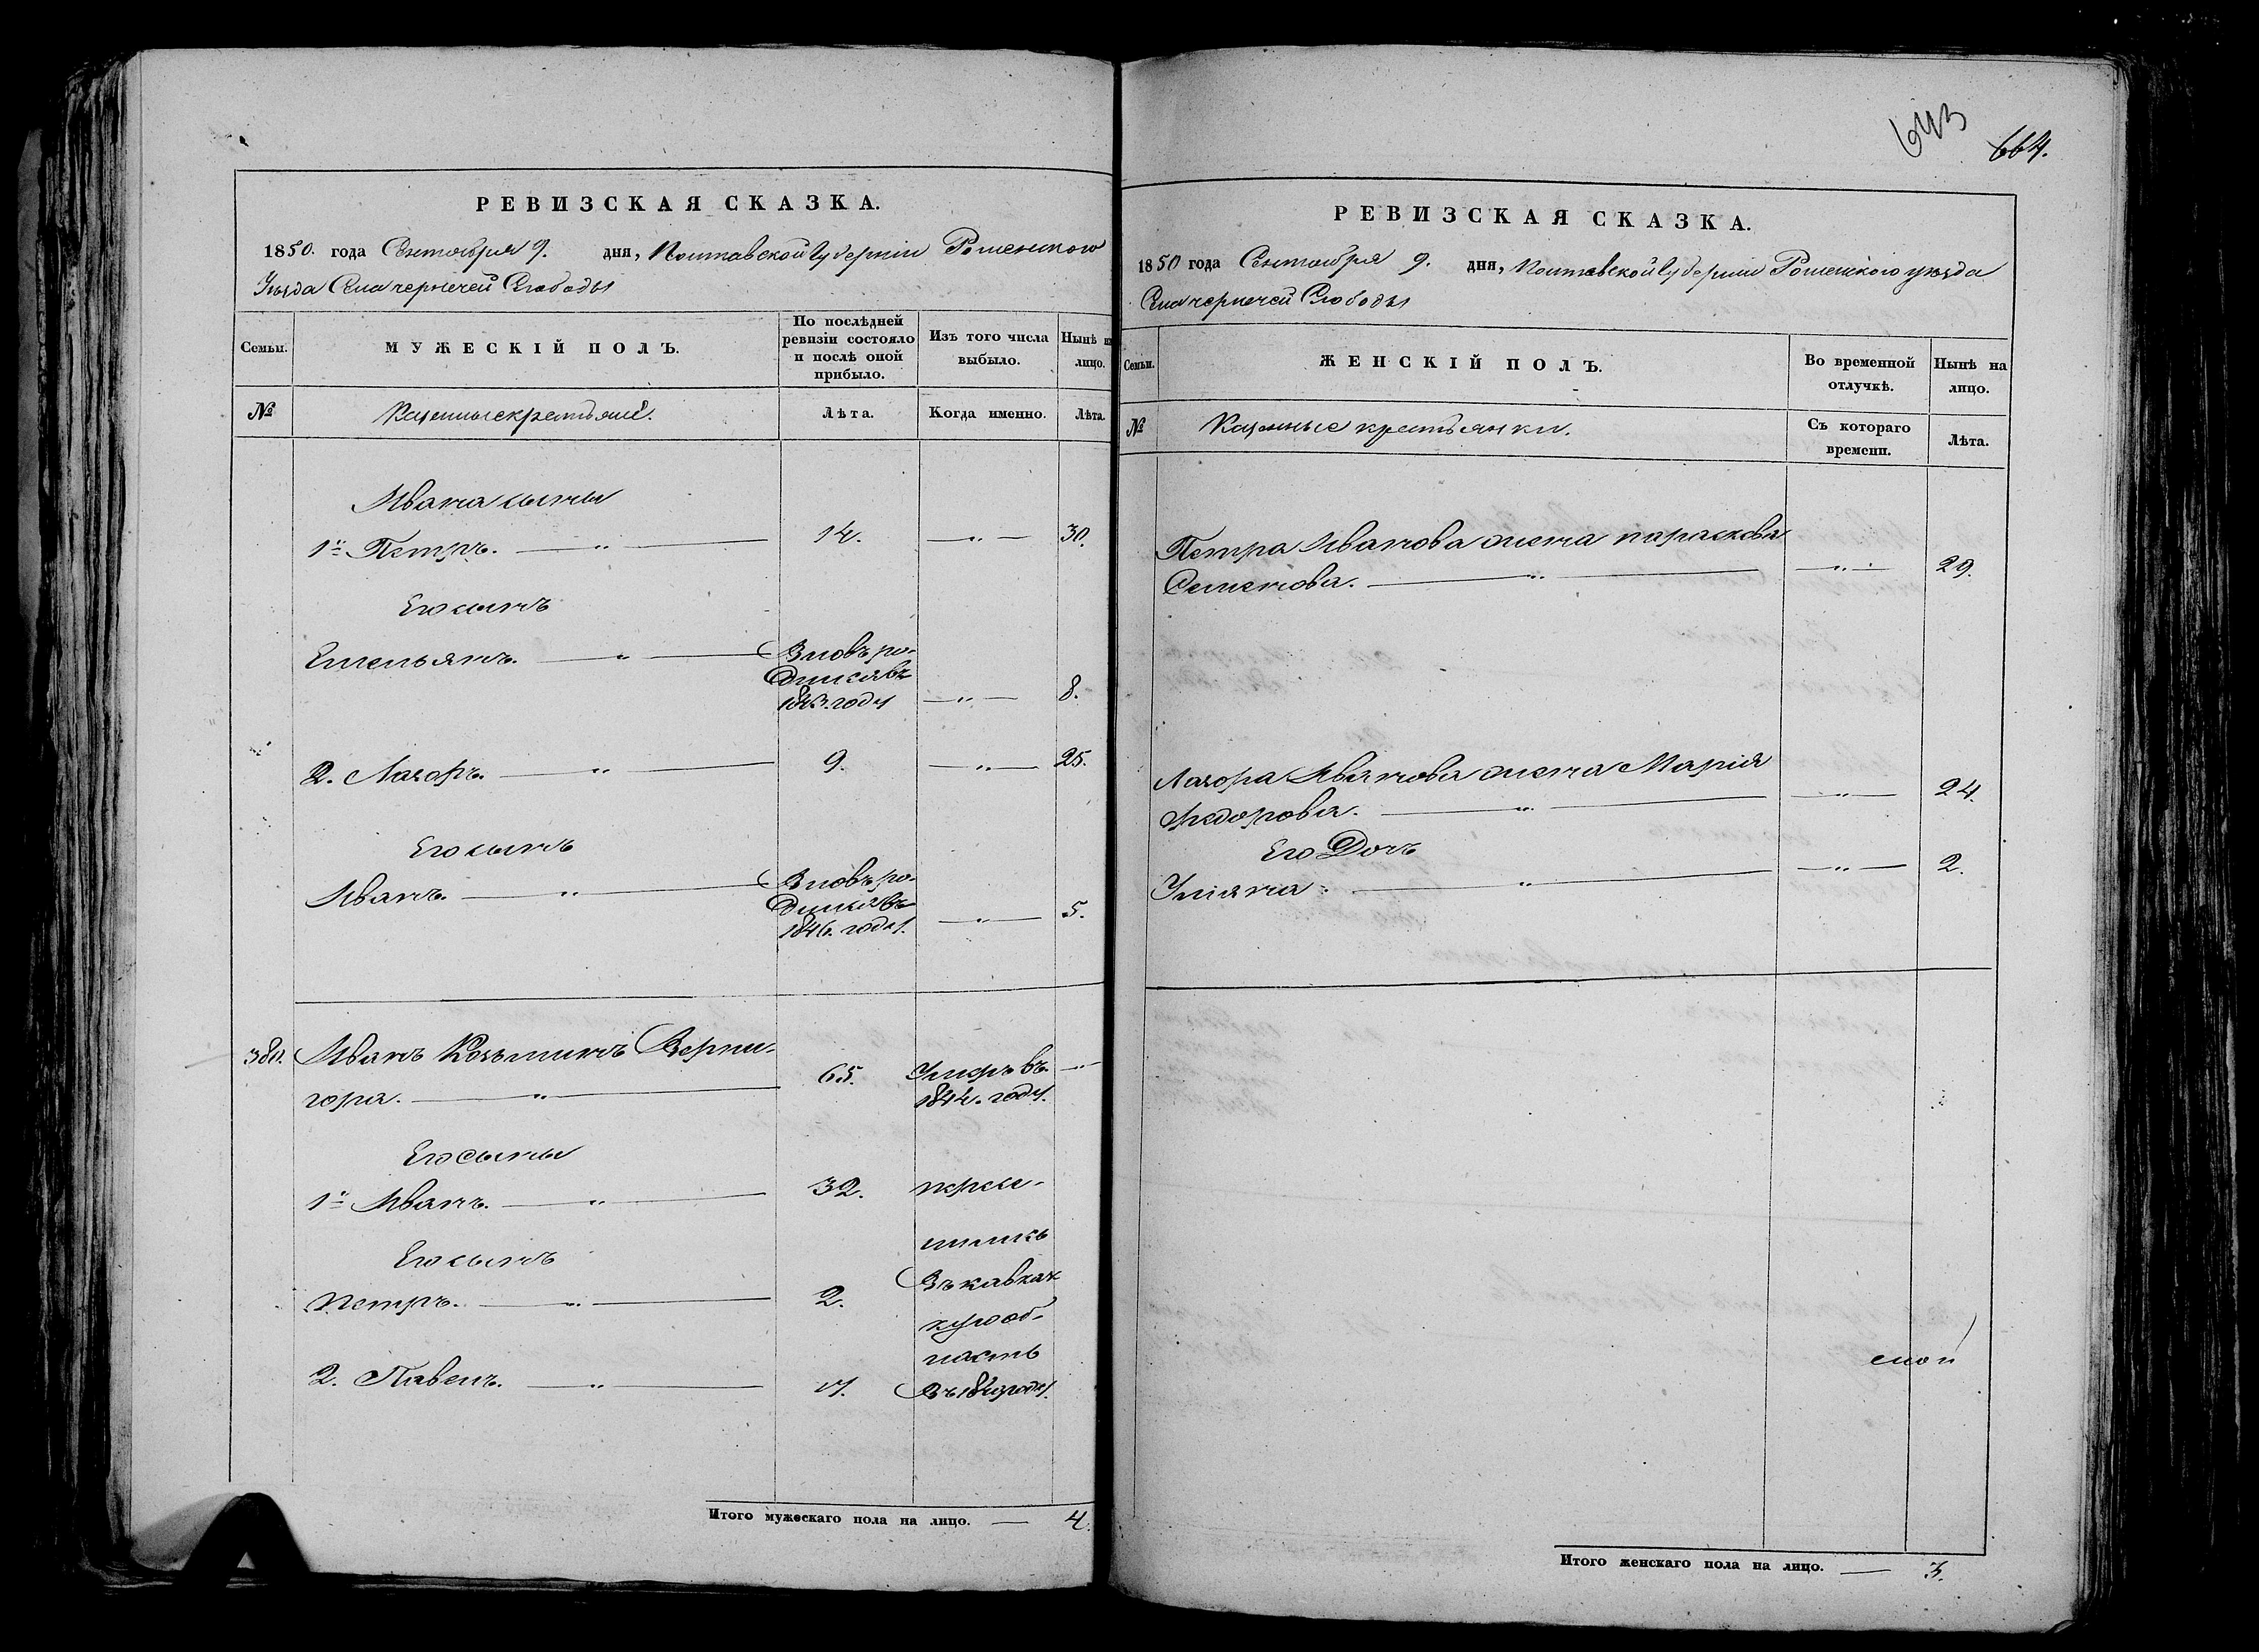 РЕВИЗСКАЯ СКАЗКА.
1850. года Сентября 9. дня, Полтавской губернiи Роменского
Уѣзда Села чернечей Слободы
Семьи.
МУЖЕСКІЙ ПОЛЪ.
По послѣдней
ревизіи состояло
и послѣ оной
прибыло.
Изъ того числа
выбыло.
Нынѣ на
лицо.
№
Казенные крестьяне.
Лѣта.
Когда именно.
Лѣта.
Ивана сыны
1й Петръ. — „ — 14. — „ — 30.
Его сынъ
Емельянъ. — „ — Вновь ро-
дился въ
1843. году — „ — 8.
2. Лазоръ. — „ — 9. — „ — 25.
Его сынъ
Иванъ. — „ — Вновь ро-
дился въ
1846. году. — „ — 5.
380. Иванъ Козьминъ Верни-
гора. — „ — 65. Умеръ въ
1844. году.
Его сыны
1й Иванъ. — „ — 32. пересе-
лились
Его сынъ
Въ кавказ
Петръ. — „ — 2.
кую об-
ласть
2. Павелъ. — „ — 17. Въ 1843 году.
Итого мужескаго пола на лицо. — 4.
643
664.
РЕВИЗСКАЯ СКАЗКА.
1850 года Сентября 9. дня, Полтавской губернiи Роменского уѣзда
Села чернечей Слободы
Семьи.
ЖЕНСКІЙ ПОЛЪ.
Во временной
отлучкѣ.
Нынѣ на
лицо.
№
Казенные крестьянки.
Съ котораго
времени.
Лѣта.
Петра Иванова жена параскева
Семенова. — „ — — „ — 29.
Лазора Иванова жена Марія
Федорова. — „ — — „ — 24.
Его Дочь
Уліяна. — „ — — „ — 2.
Итого женскаго пола на лицо. — 3.